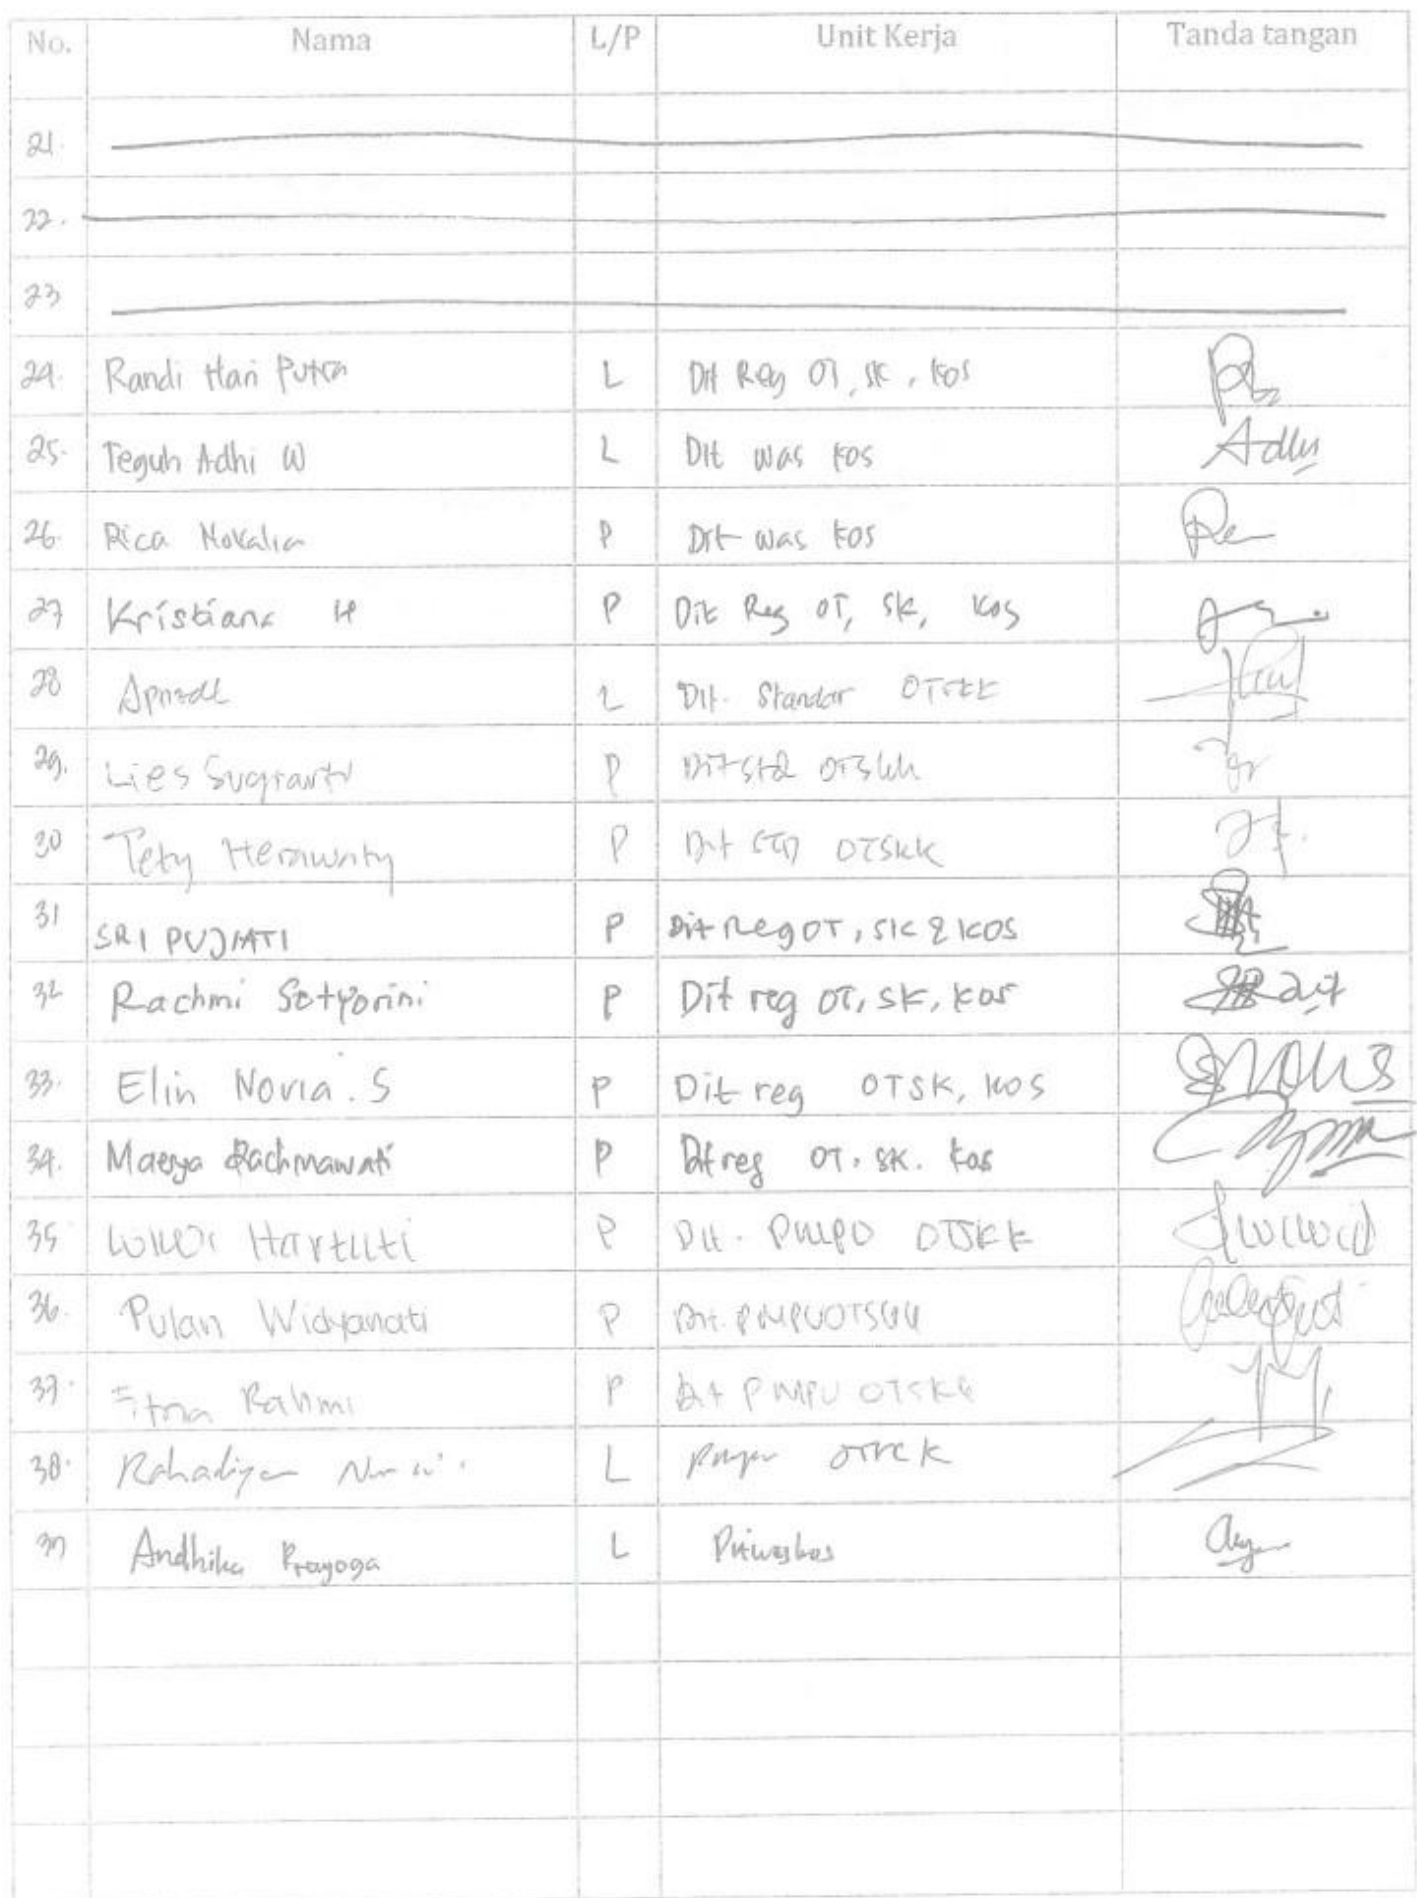 No. Nama L/P Unit Kerja Tanda tangan
21.
22.
23
24. Randi Hari Putra L Dit Reg OT, SK, Kos
25. Teguh Adhi W L Dit Was Kos
26. Rica Novalia P Dit Was Kos
27 Kristiana H P Dit Reg OT, SK, Kos
28 L Dit. Standar OTSKK
29. Lies Sugiarti P Dit Std OTSKK
30 Tety Herawaty P Dit STD OTSKK
31 SRI PUJIATI P Dit Reg OT, SK & KOS
32 Rachmi Setyorini P Dit reg OT, SK, Kos
33. Elin Novia. S P Dit reg OTSK, KOS
34. Maesya Rachmawati P Dit reg OT. SK. Kos
35 Hartuti P Dit. PMPU OTSKK
36. Pulan Widyanati P Dit. PMPU OTSKK
37. Fitria Rahmi P Dit PMPU OTSKK
38. Rahadiyan L
39 Andhika Prayoga L Ditwaskos